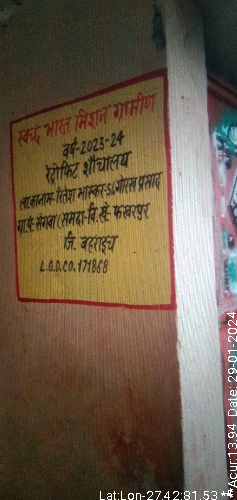 स्वच्छ भारत मिशन ग्रामीण
वर्ष-2023-24
रेट्रोफिट शौचालय
ला.का नाम- रितेश भास्कर S/o गोरख प्रसाद
ग्रा.पं. सेगवा (समदा- वि.खं. फखरपुर
जि. बहराइच
L.G.D.CO. 171868
Lat:Lon-27.42:81.53 **Acur:13.94 Date: 29-01-2024